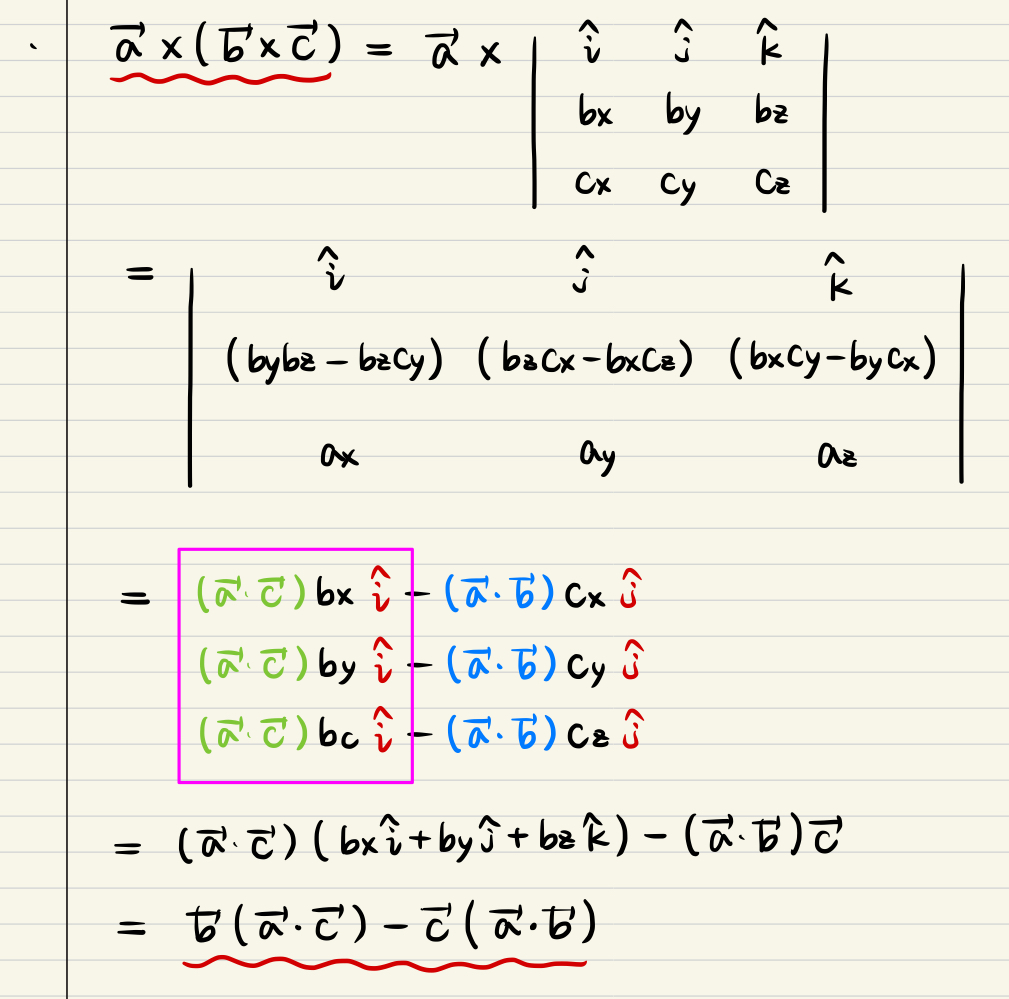 · a⃗ × (b⃗ × c⃗) = a⃗ × | î ĵ k̂ |
| bx by bz |
| cx cy cz |
= | î ĵ k̂ |
| (bybz − bzcy) (bzcx − bxcz) (bxcy − bycx) |
| ax ay az |
= (a⃗·c⃗) bx î − (a⃗·b⃗) cx ĵ
(a⃗·c⃗) by î − (a⃗·b⃗) cy ĵ
(a⃗·c⃗) bc î − (a⃗·b⃗) cz ĵ
= (a⃗·c⃗) (bx î + by ĵ + bz k̂) − (a⃗·b⃗) c⃗
= b⃗ (a⃗·c⃗) − c⃗ (a⃗·b⃗)